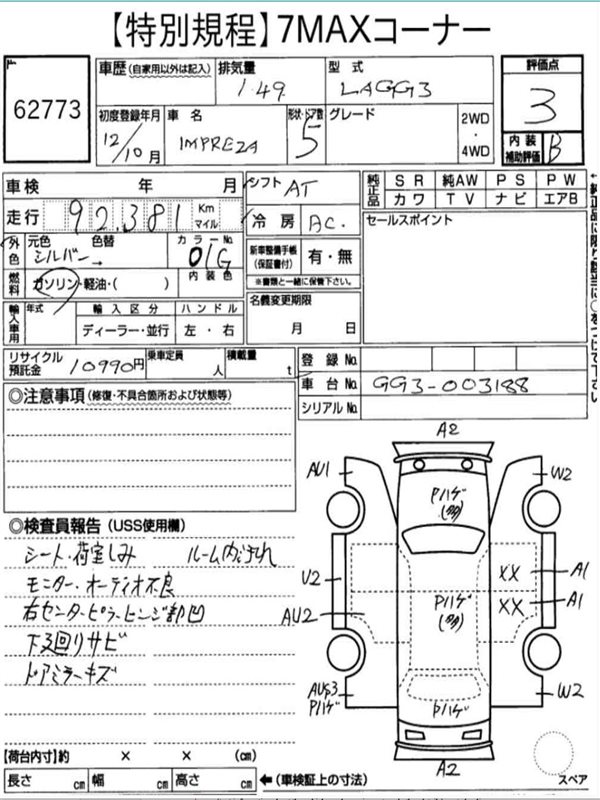 【特別規程】7MAXコーナー
62773
車歴（自家用以外は記入）
排気量 1.49
型式 LAGG3
評価点 3
初度登録年月 12/10月
車名 IMPREZA
形状・ドア数 5
グレード
2WD・4WD
内装補助評価 B
車検 年 月
シフト AT
純正品 SR 純AW PS PW
カワ TV ナビ エアB
走行 92,381 Km マイル
冷房 AC.
セールスポイント
←純正品に限り該当に○をつけて下さい
外色 元色 シルバー → 色替
カラーNo. 01G
内装色
新車整備手帳（保証書付） 有・無
※書類と一緒に保管下さい。
燃料 ガソリン・軽油・( )
名義変更期限 月 日
輸入車用 年式 輸入区分 ハンドル
ディーラー・並行 左・右
リサイクル預託金 10990円
乗車定員 人
積載量 t
登録No.
車台No. GG3-003188
シリアルNo.
◎注意事項（修復・不具合箇所および状態等）
◎検査員報告（USS使用欄）
シート・荷室しみ ルーム内汚れ
モニター・オーディオ不良
右センターピラーヒンジ部凹
下回りサビ
ドアミラーキズ
A2
AU1
W2
Pハゲ(多)
U2
XX A1
AU2
XX A1
Pハゲ(多)
AUS3 Pハゲ
Pハゲ
W2
A2
スペア
【荷台内寸】約 × × (cm)
長さ cm 幅 cm 高さ cm ←（車検証上の寸法）